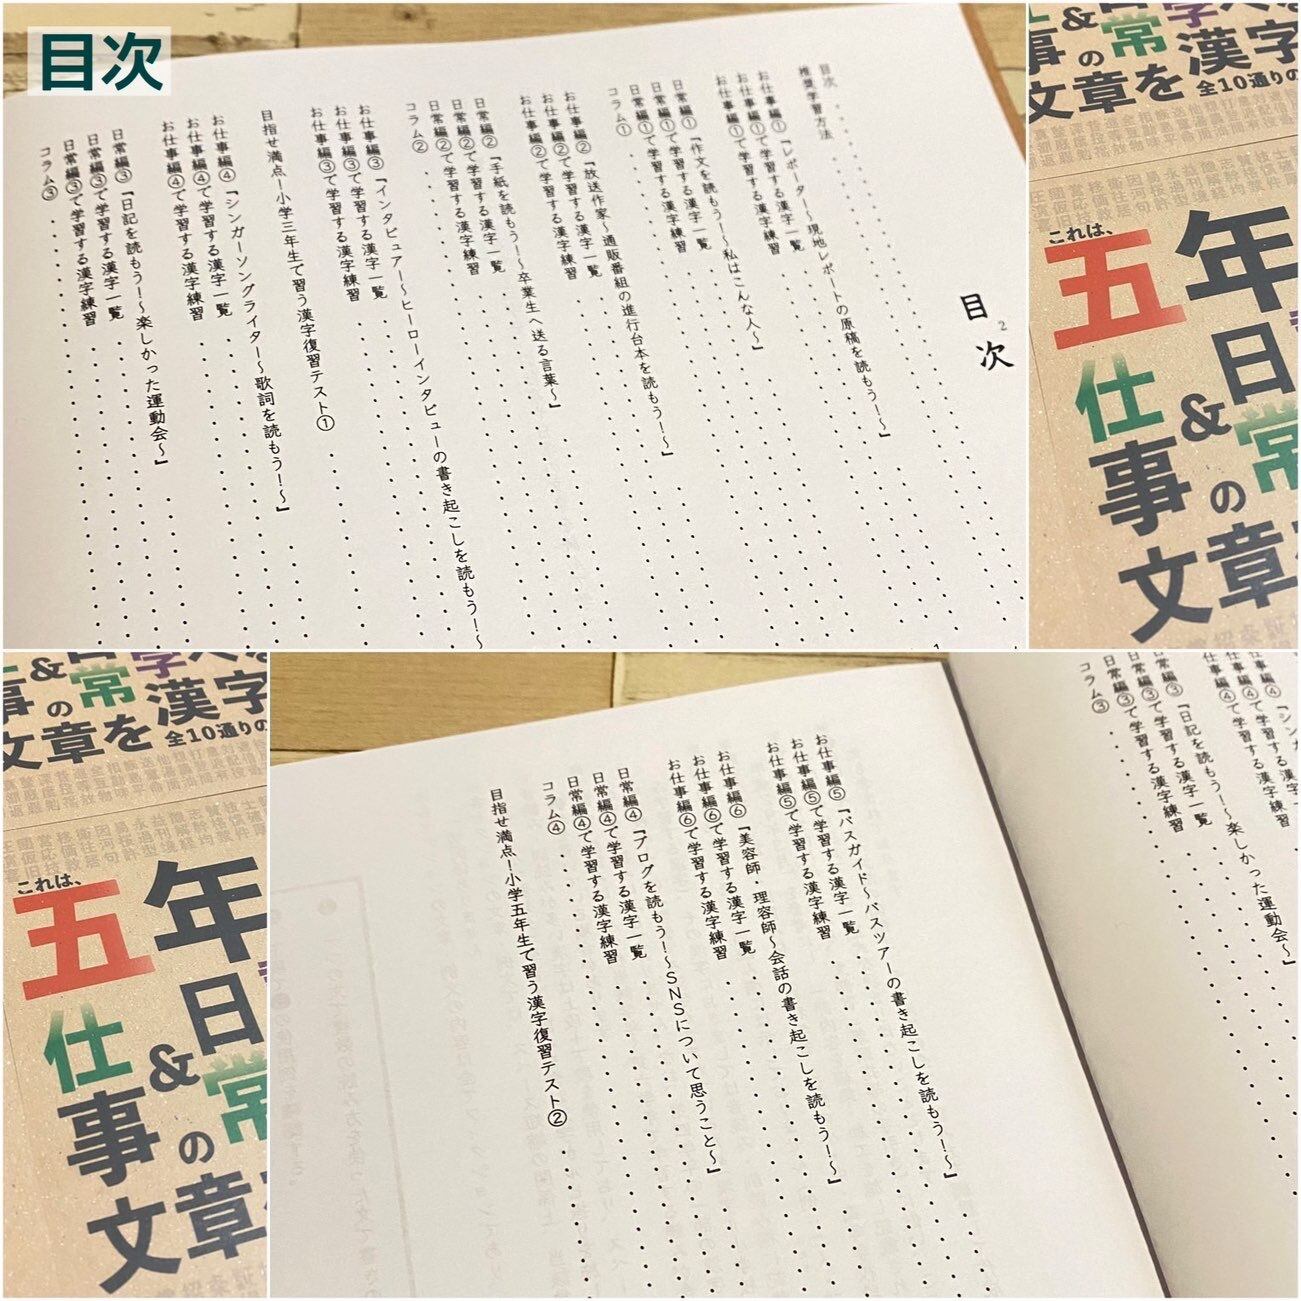 目次
目次
目次
推奨学習方法
お仕事編①『レポーター～現地レポートの原稿を読もう！～』
お仕事編①で学習する漢字一覧
お仕事編①で学習する漢字練習
日常編①『作文を読もう！～私はこんな人～』
日常編①で学習する漢字一覧
日常編①で学習する漢字練習
コラム①
お仕事編②『放送作家～通販番組の進行台本を読もう！～』
お仕事編②で学習する漢字一覧
お仕事編②で学習する漢字練習
日常編②『手紙を読もう！～卒業生へ送る言葉～』
日常編②で学習する漢字一覧
日常編②で学習する漢字練習
コラム②
お仕事編③『インタビュアー～ヒーローインタビューの書き起こしを読もう！～
お仕事編③で学習する漢字一覧
お仕事編③で学習する漢字練習
目指せ満点！小学三年生で習う漢字復習テスト①
お仕事編④『シンガーソングライター～歌詞を読もう！～』
お仕事編④で学習する漢字一覧
お仕事編④で学習する漢字練習
日常編③『日記を読もう！～楽しかった運動会～』
日常編③で学習する漢字一覧
日常編③で学習する漢字練習
コラム③
2
事&の常
文章を漢字
全10通りの
これは、
五年
仕事&日常の
文章
事&の常
文章を漢字
全10通りの
これは、
五年
仕事&日常の
文章
お仕事編④『シン
お仕事編④で学習する漢
お仕事編④で学習する漢字
日常編③『日記を読もう！～楽しかった運動会～』
日常編③で学習する漢字一覧
日常編③で学習する漢字練習
コラム③
お仕事編⑤『バスガイド～バスツアーの書き起こしを読もう！～』
お仕事編⑤で学習する漢字一覧
お仕事編⑤で学習する漢字練習
お仕事編⑥『美容師・理容師～会話の書き起こしを読もう！～』
お仕事編⑥で学習する漢字一覧
お仕事編⑥で学習する漢字練習
日常編④『ブログを読もう！～SNSについて思うこと～』
日常編④で学習する漢字一覧
日常編④で学習する漢字練習
コラム④
目指せ満点！小学五年生で習う漢字復習テスト②